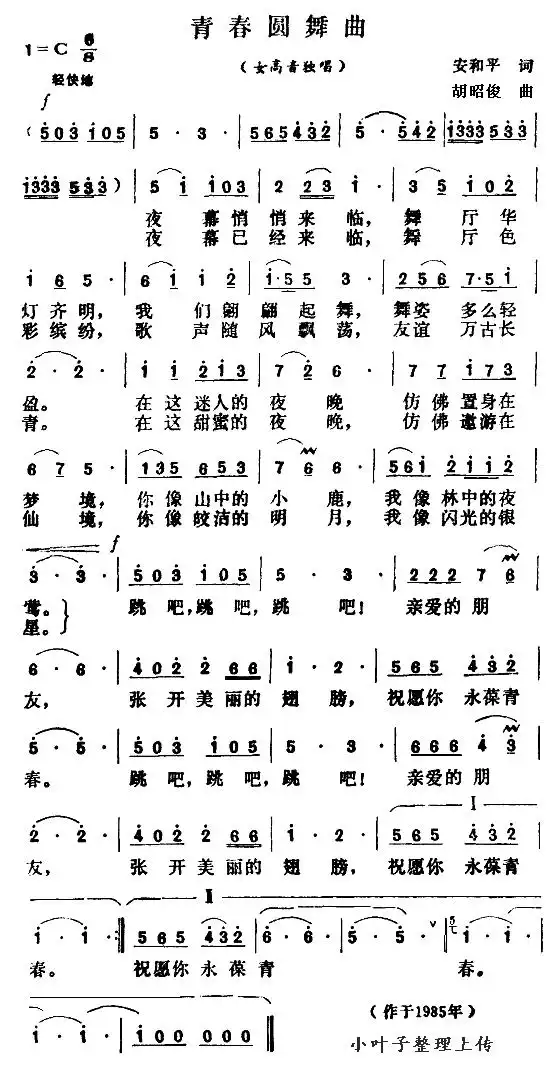 青春圆舞曲
1=C 6/8
（女高音独唱）
安和平 词
轻快地
胡昭俊 曲
f
（503 105 | 5 · 3 · | 565 432 | 5 · 542 | 1333 533 |
1333 533 ） | 5 1 103 | 2 23 1 · | 3 5 102 |
夜 幕悄 悄来 临， 舞 厅 华
夜 幕已 经来 临， 舞 厅 色
1 6 5 · | 6 1 1 2 | 1·5 5 3 · | 256 7·5 1 |
灯 齐 明， 我 们 翩 翩 起 舞， 舞姿 多么轻
彩 缤 纷， 歌 声 随 风 飘 荡， 友谊 万古长
2 · 2 · | 1 1 213 | 7 2 6 · | 7 7 173 |
盈。 在 这 迷人的 夜 晚 仿 佛 置身在
青。 在 这 甜蜜的 夜 晚， 仿 佛 遨游在
6 7 5 · | 135 653 | 7 6 6 · | 561 2112 |
梦 境， 你像 山中的 小 鹿， 我像 林中的夜
仙 境， 你像 皎洁的 明 月， 我像 闪光的银
f
3 · 3 · | 503 105 | 5 · 3 · | 222 7 6 |
莺。 跳 吧，跳 吧，跳 吧！ 亲爱的 朋
星。
6 · 6 · | 402 2 66 | 1 · 2 · | 565 432 |
友， 张 开 美 丽的 翅 膀， 祝愿你 永葆青
5 · 5 · | 503 105 | 5 · 3 · | 666 4 3 |
春。 跳 吧，跳 吧，跳 吧！ 亲爱的 朋
I
2 · 2 · | 402 2 66 | 1 · 2 · | 565 432 |
友， 张 开 美 丽的 翅 膀， 祝愿你 永葆青
II
1 · 1 · :| 565 432 | 6 · 6 · | 5 · 5 · ∨ | 1 · 1 · |
春。 祝愿你 永 葆 青 春。
1 · 1 · | 100 000 ‖
（作于1985年）
小叶子整理上传